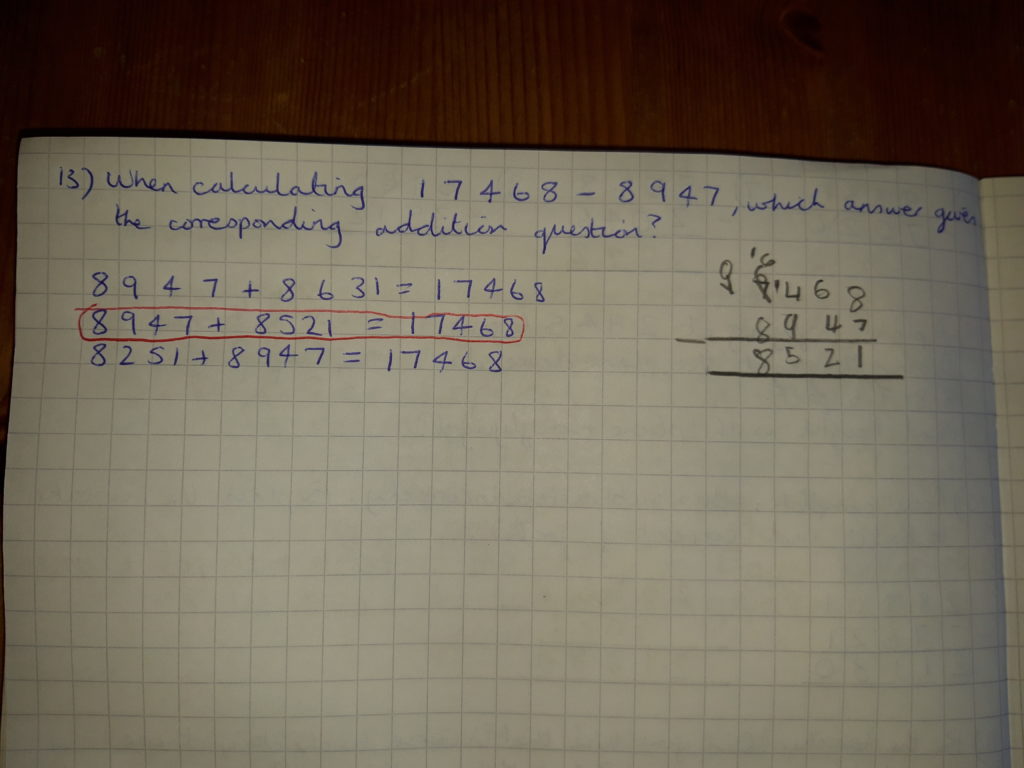 13) When calculating 17468 - 8947, which answer gives
the corresponding addition question?
8947 + 8631 = 17468
8947 + 8521 = 17468
8251 + 8947 = 17468
468
- 8947
8521